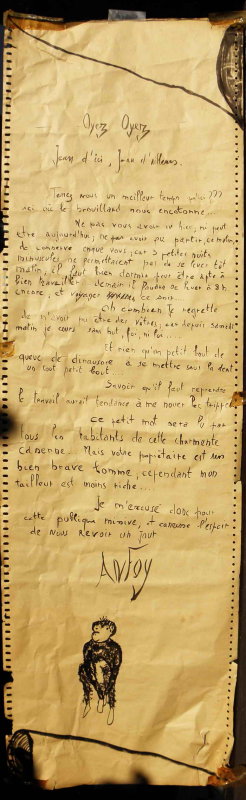 Oyez Oyez
Jean d'ici, Jean d'ailleurs.
Tenez vous un meilleur temps qu'ici ???
ici où le brouillard nous encotonne...
Ne pas vous avoir vu hier, ni peut
etre aujourd'hui, ne pas avoir pu partir ce matin,
de conserve avec vous, car 3 petites nuits
minuscules ne permettaient pas de se lever tôt
matin, il faut bien dormir pour être apte à
bien travailler demain il faudra se lever à 3h
encore, et voyager ce soir...
Oh combien je regrette
de n'avoir pu être des vôtres, car depuis samedi
matin je cours sans but, foi, ni loi.....
Et rien qu'un petit bout de
queue de dinausore à se mettre sous la dent
un tout petit bout...
Savoir qu'il faut reprendre
le travail aurait tendance à me nouer les trippes.
Ce petit mot sera lu par
tous les habitants de cette charmante
caserne. Mais votre papiétaire est un
bien brave homme, cependant mon
tailleur est moins riche...
Je m'excuse donc pour
cette publique missive, et caresse l'espoir
de vous revoir un jour
ANTOY